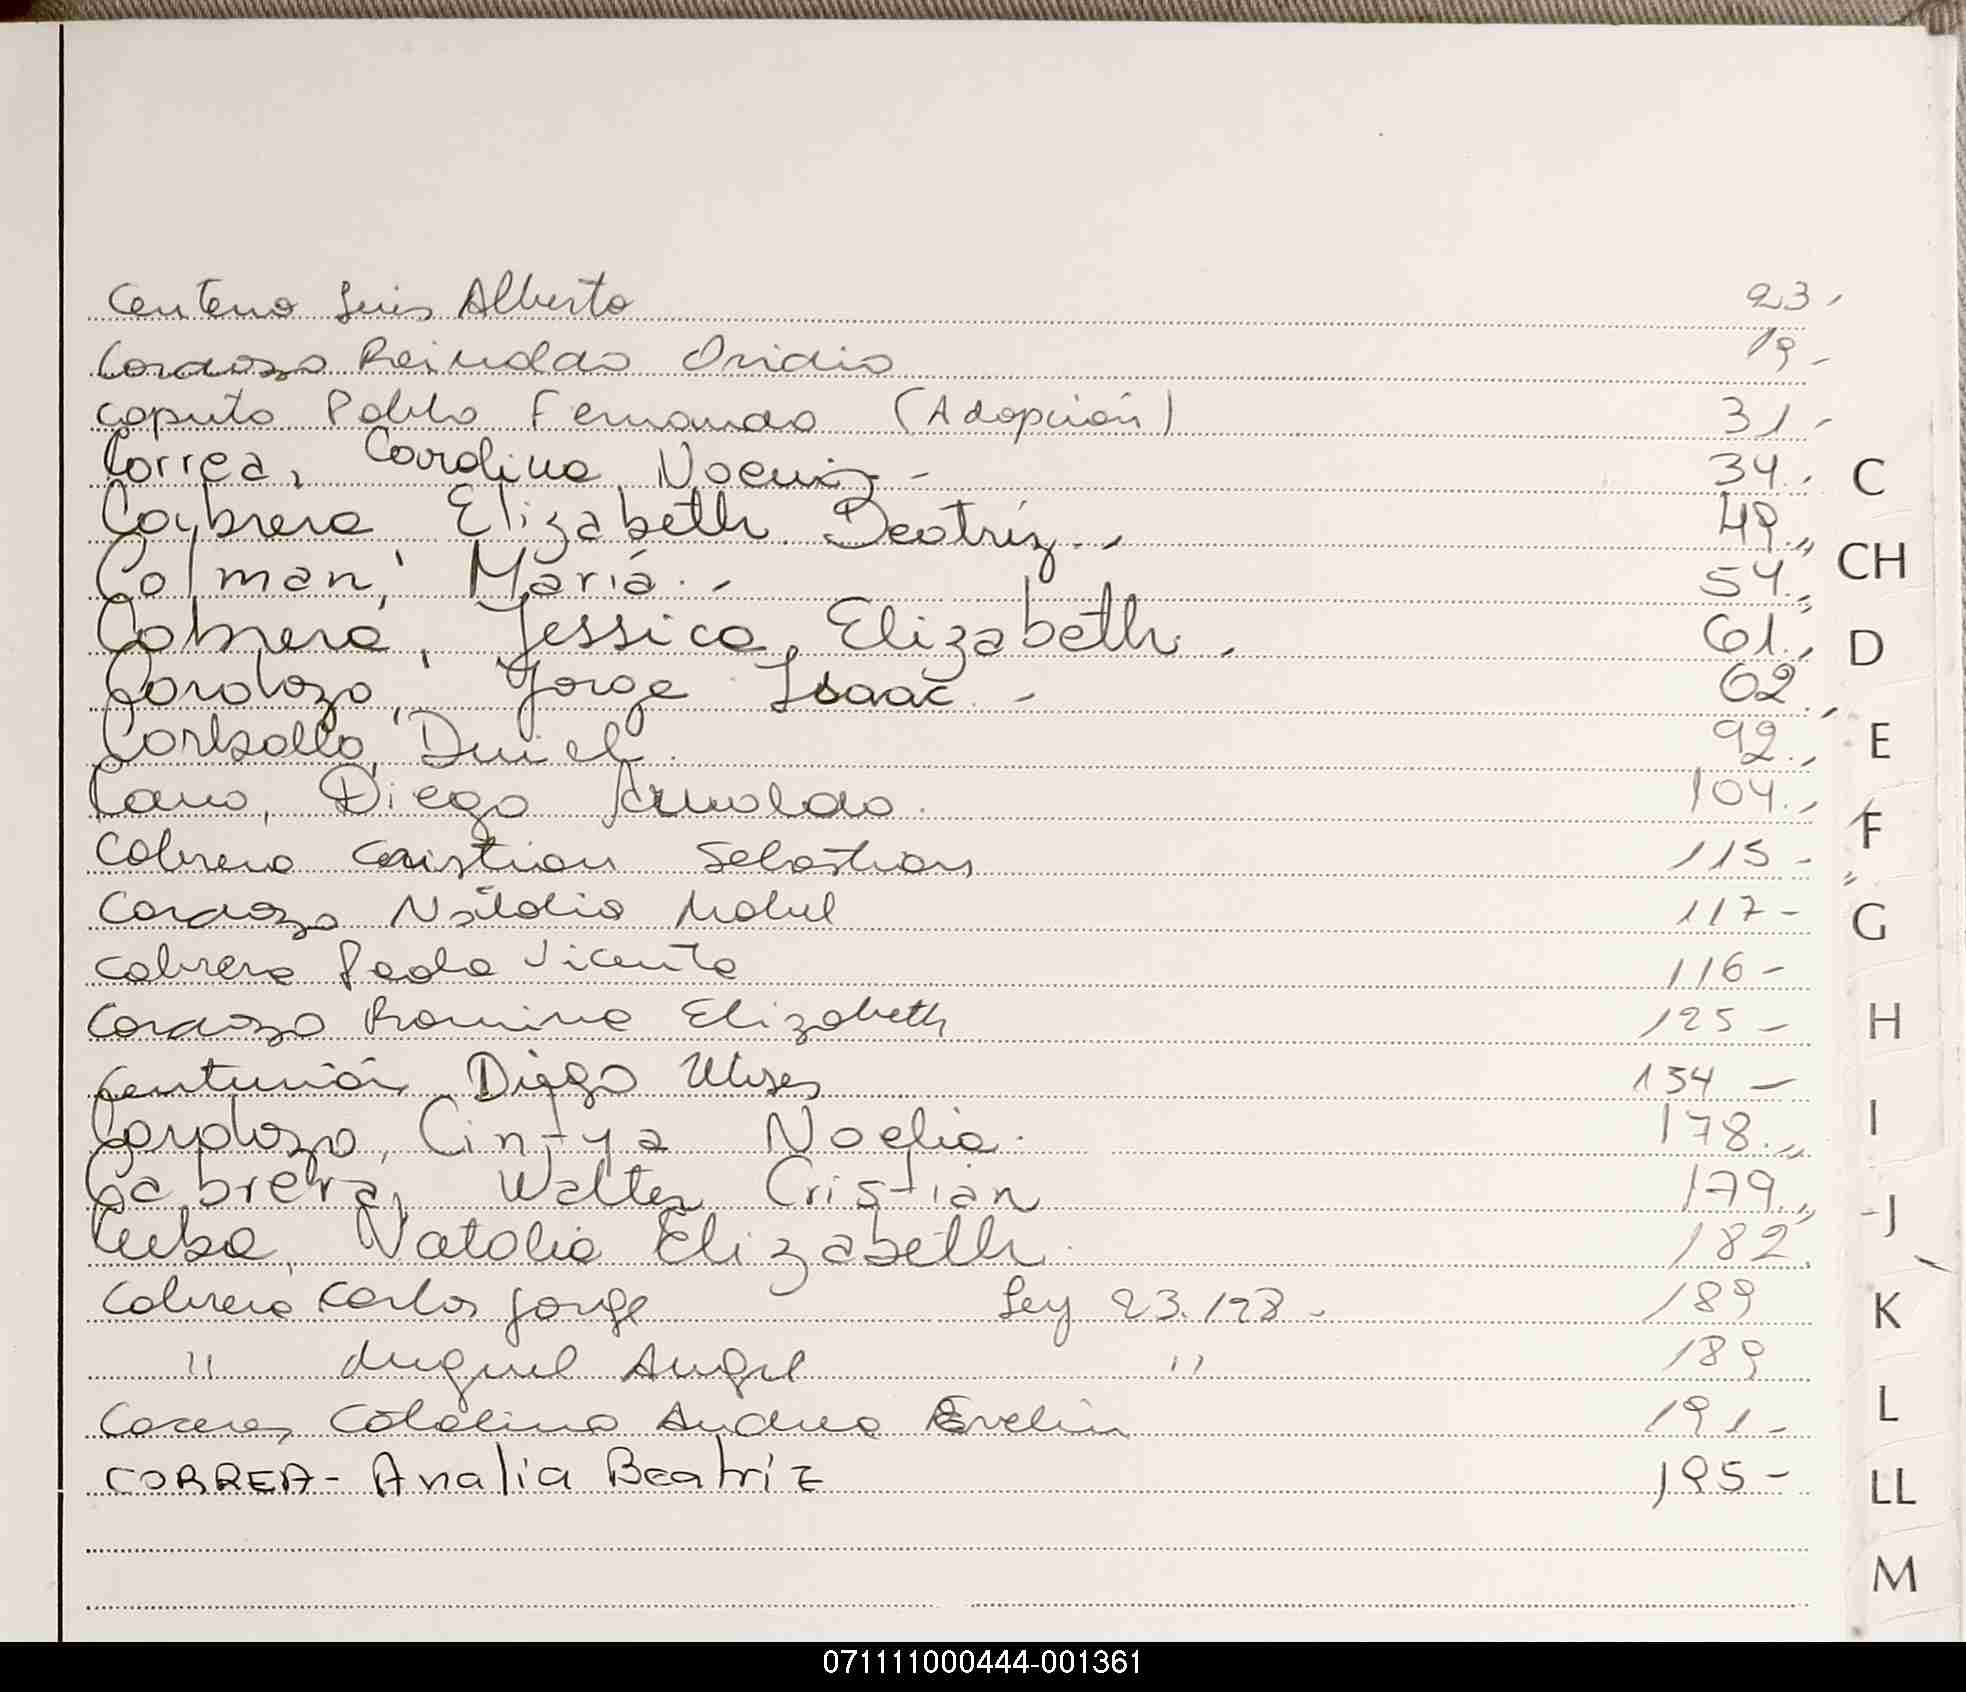 Centeno Luis Alberto 23-
Cardozo Reinaldo Ovidio 19-
Caputo Pablo Fernando (Adopción) 31-
Correa, Carolina Noemi.- 34.-
Cabrera Elizabeth Beatriz.- 49.-
Colman, María.- 54.-
Cabrera, Jessica Elizabeth.- 61.-
Cardozo, Jorge Isaac.- 62.-
Carballo, Daniel. 92.-
Cano, Diego Arnoldo. 104.-
Cabrera Cristian Sebastian 115-
Cardozo Natalia Mabel 117-
Cabrera Paola Vicenta 116-
Cardozo Romina Elizabeth 125-
Centurión Diego Ulises 154-
Cardozo, Cintya Noelia. 178.-
Cabrera, Walter Cristian 179.-
Cuba, Natalia Elizabeth. 182.
Cabrera Carlos Jorge Ley 23.128- 189
" Miguel Angel " 189
Catalina Andrea Evelin 191-
CORREA- Analia Beatriz 195-
C
CH
D
E
F
G
H
I
J
K
L
LL
M
071111000444-001361